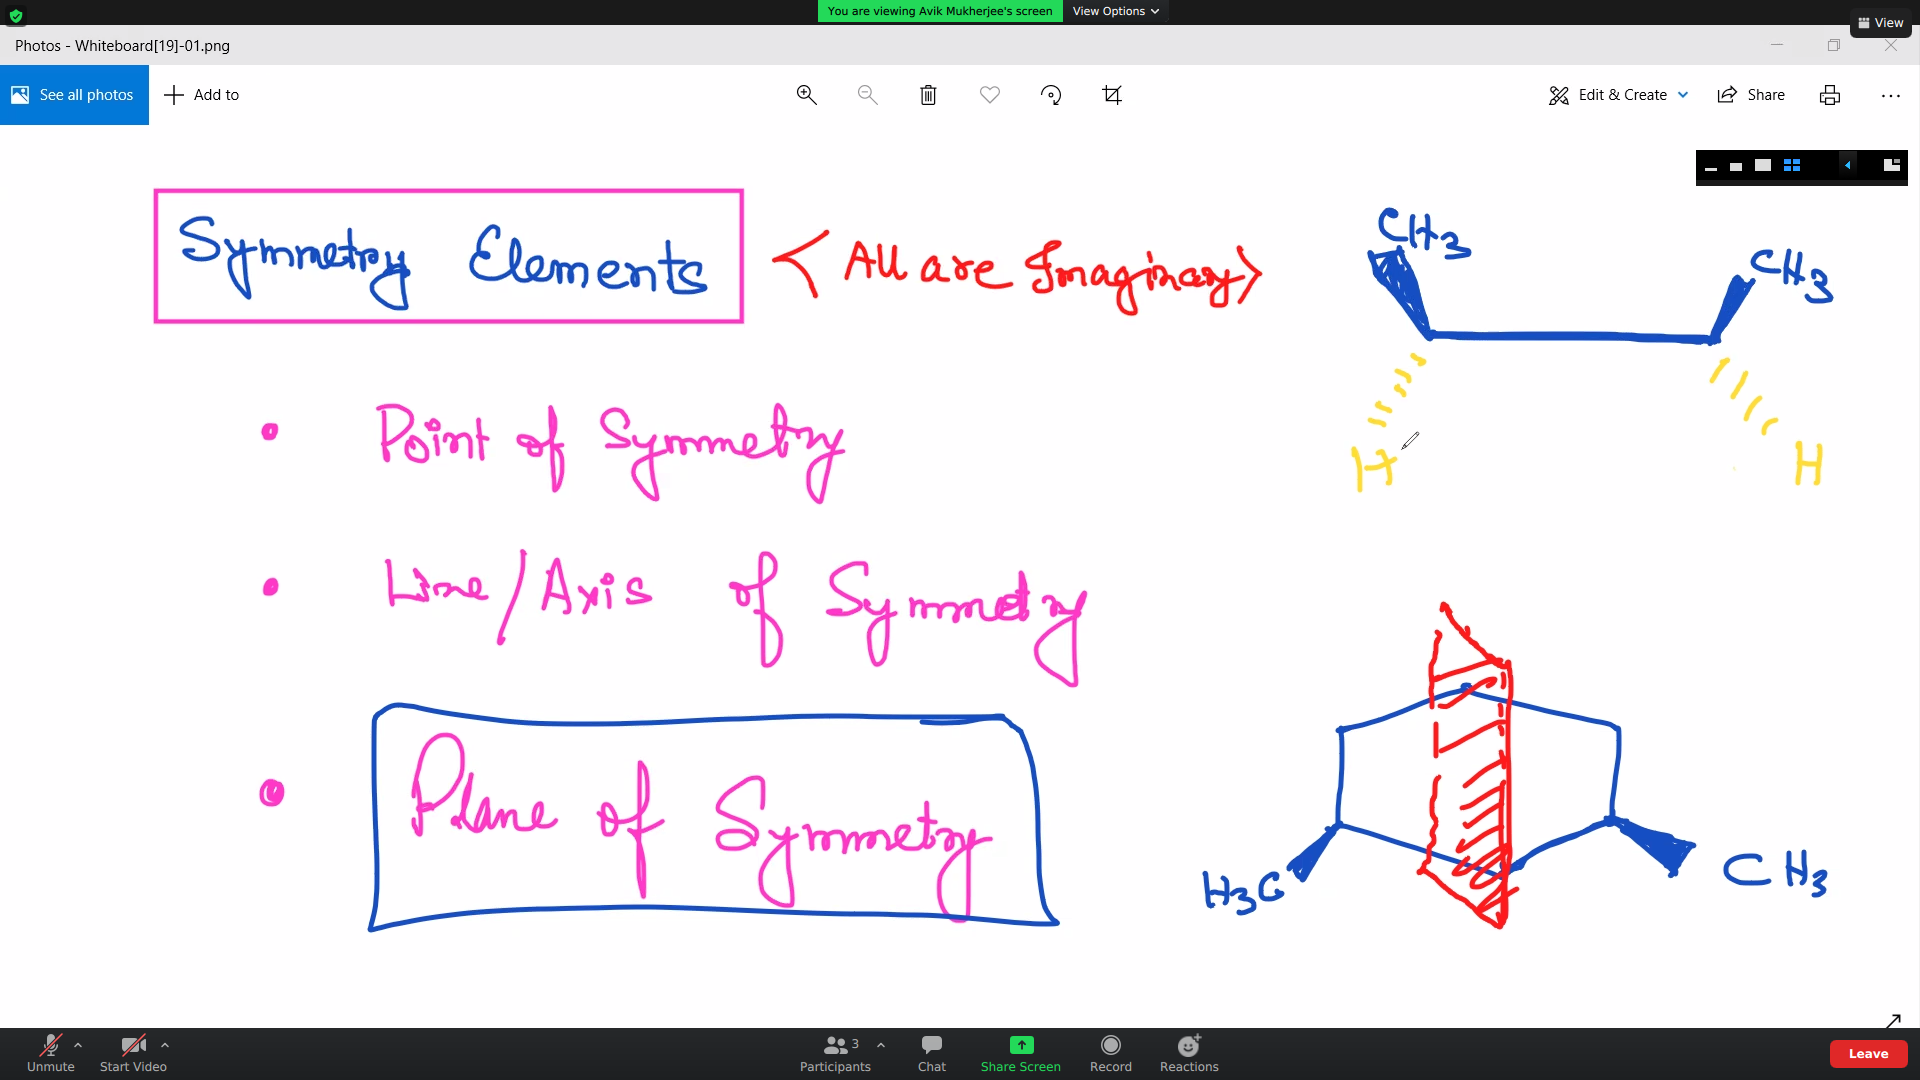 You are viewing Avik Mukherjee's screen View Options
View
Photos - Whiteboard[19]-01.png
See all photos Add to Edit & Create Share
Symmetry Elements < All are Imaginary >
CH3
CH3
H H
• Point of Symmetry
• Line/Axis of Symmetry
• Plane of Symmetry
H3C CH3
Unmute Start Video Participants 3 Chat Share Screen Record Reactions Leave